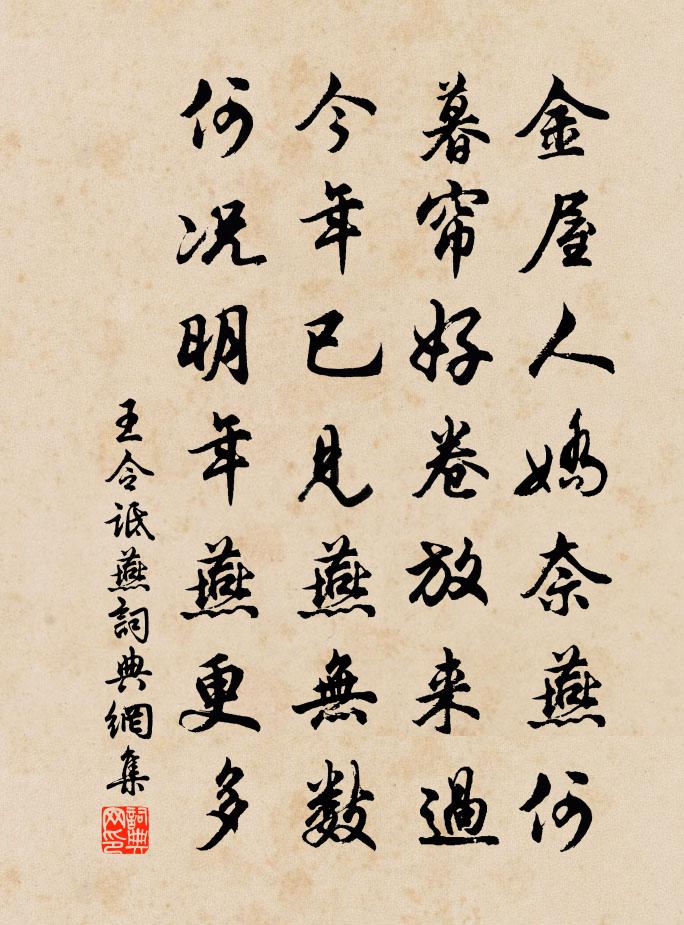 金屋人嬌奈燕何
暮帘好卷放来過
今年已見燕無数
何况明年燕更多
王令詆燕詞典網集
詞典网印